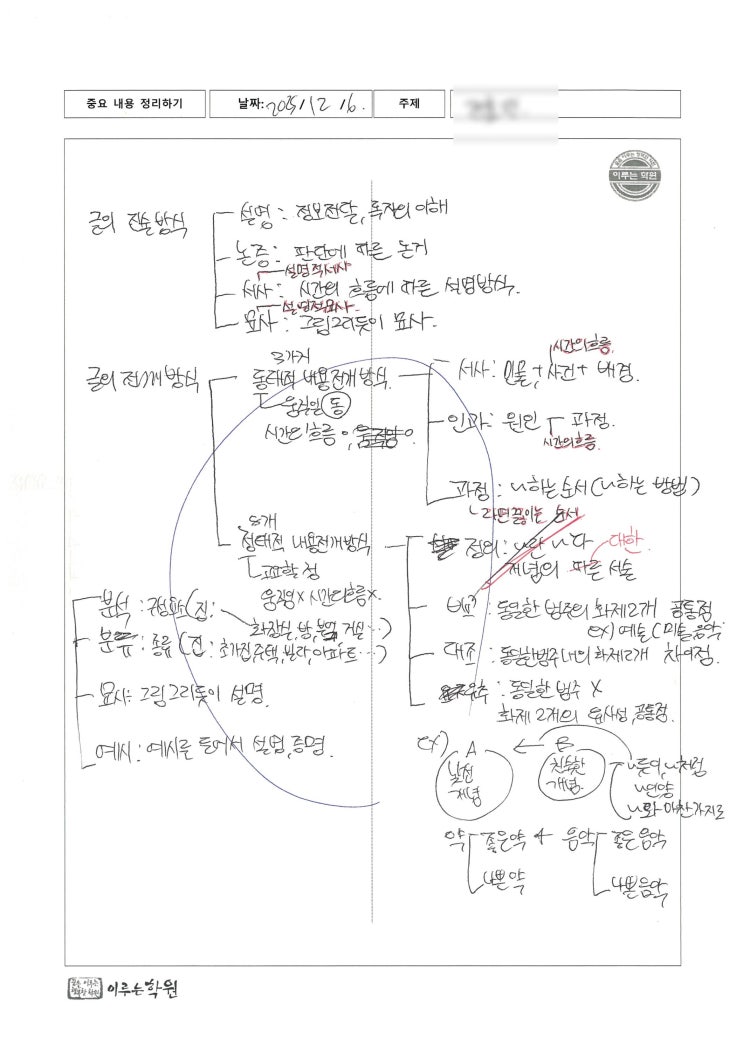 중요 내용 정리하기
날짜: 2025/12 16.
주제
이루는 학원
글의 진술방식
설명: 정보전달, 독자의 이해
논증: 판단에 따른 논거
설명적서사
서사: 시간의 흐름에 따른 설명방식.
설명적묘사.
묘사: 그림그리듯이 묘사.
글의 전개방식
3가지
동태적 내용전개방식
움직일 동
시간의 흐름 o, 움직양 o.
시간의흐름
서사: 인물 + 사건 + 배경.
인과: 원인 과정.
시간의흐름.
과정: ~하는 순서(~하는 방법)
라면끓이는 순서
8개
정태적 내용전개방식
고요할 정
움직임x 시간의흐름x.
정의: ~란 ~다
대한
개념의 따른 서술
비교: 동일한 범주의 화제2개 공통점
ex) 예술(미술,음악
대조: 동일한범주내의 화제2개 차이점.
유추: 동일한 범주 x
화제 2개의 유사성,공통점.
분석: 구성요소(집:
화장실, 방, 부엌, 거실…)
분류: 종류(집: 초가집,주택,빌라,아파트…)
묘사: 그림그리듯이 설명.
예시: 예시를 들어서 설명,증명.
ex) A ← B
낯선 개념
친숙한 개념.
~듯이,~처럼
~연양
~와 마찬가지로
약 좋은약 + 음악 좋은음악
나쁜약 나쁜음악
이루는학원